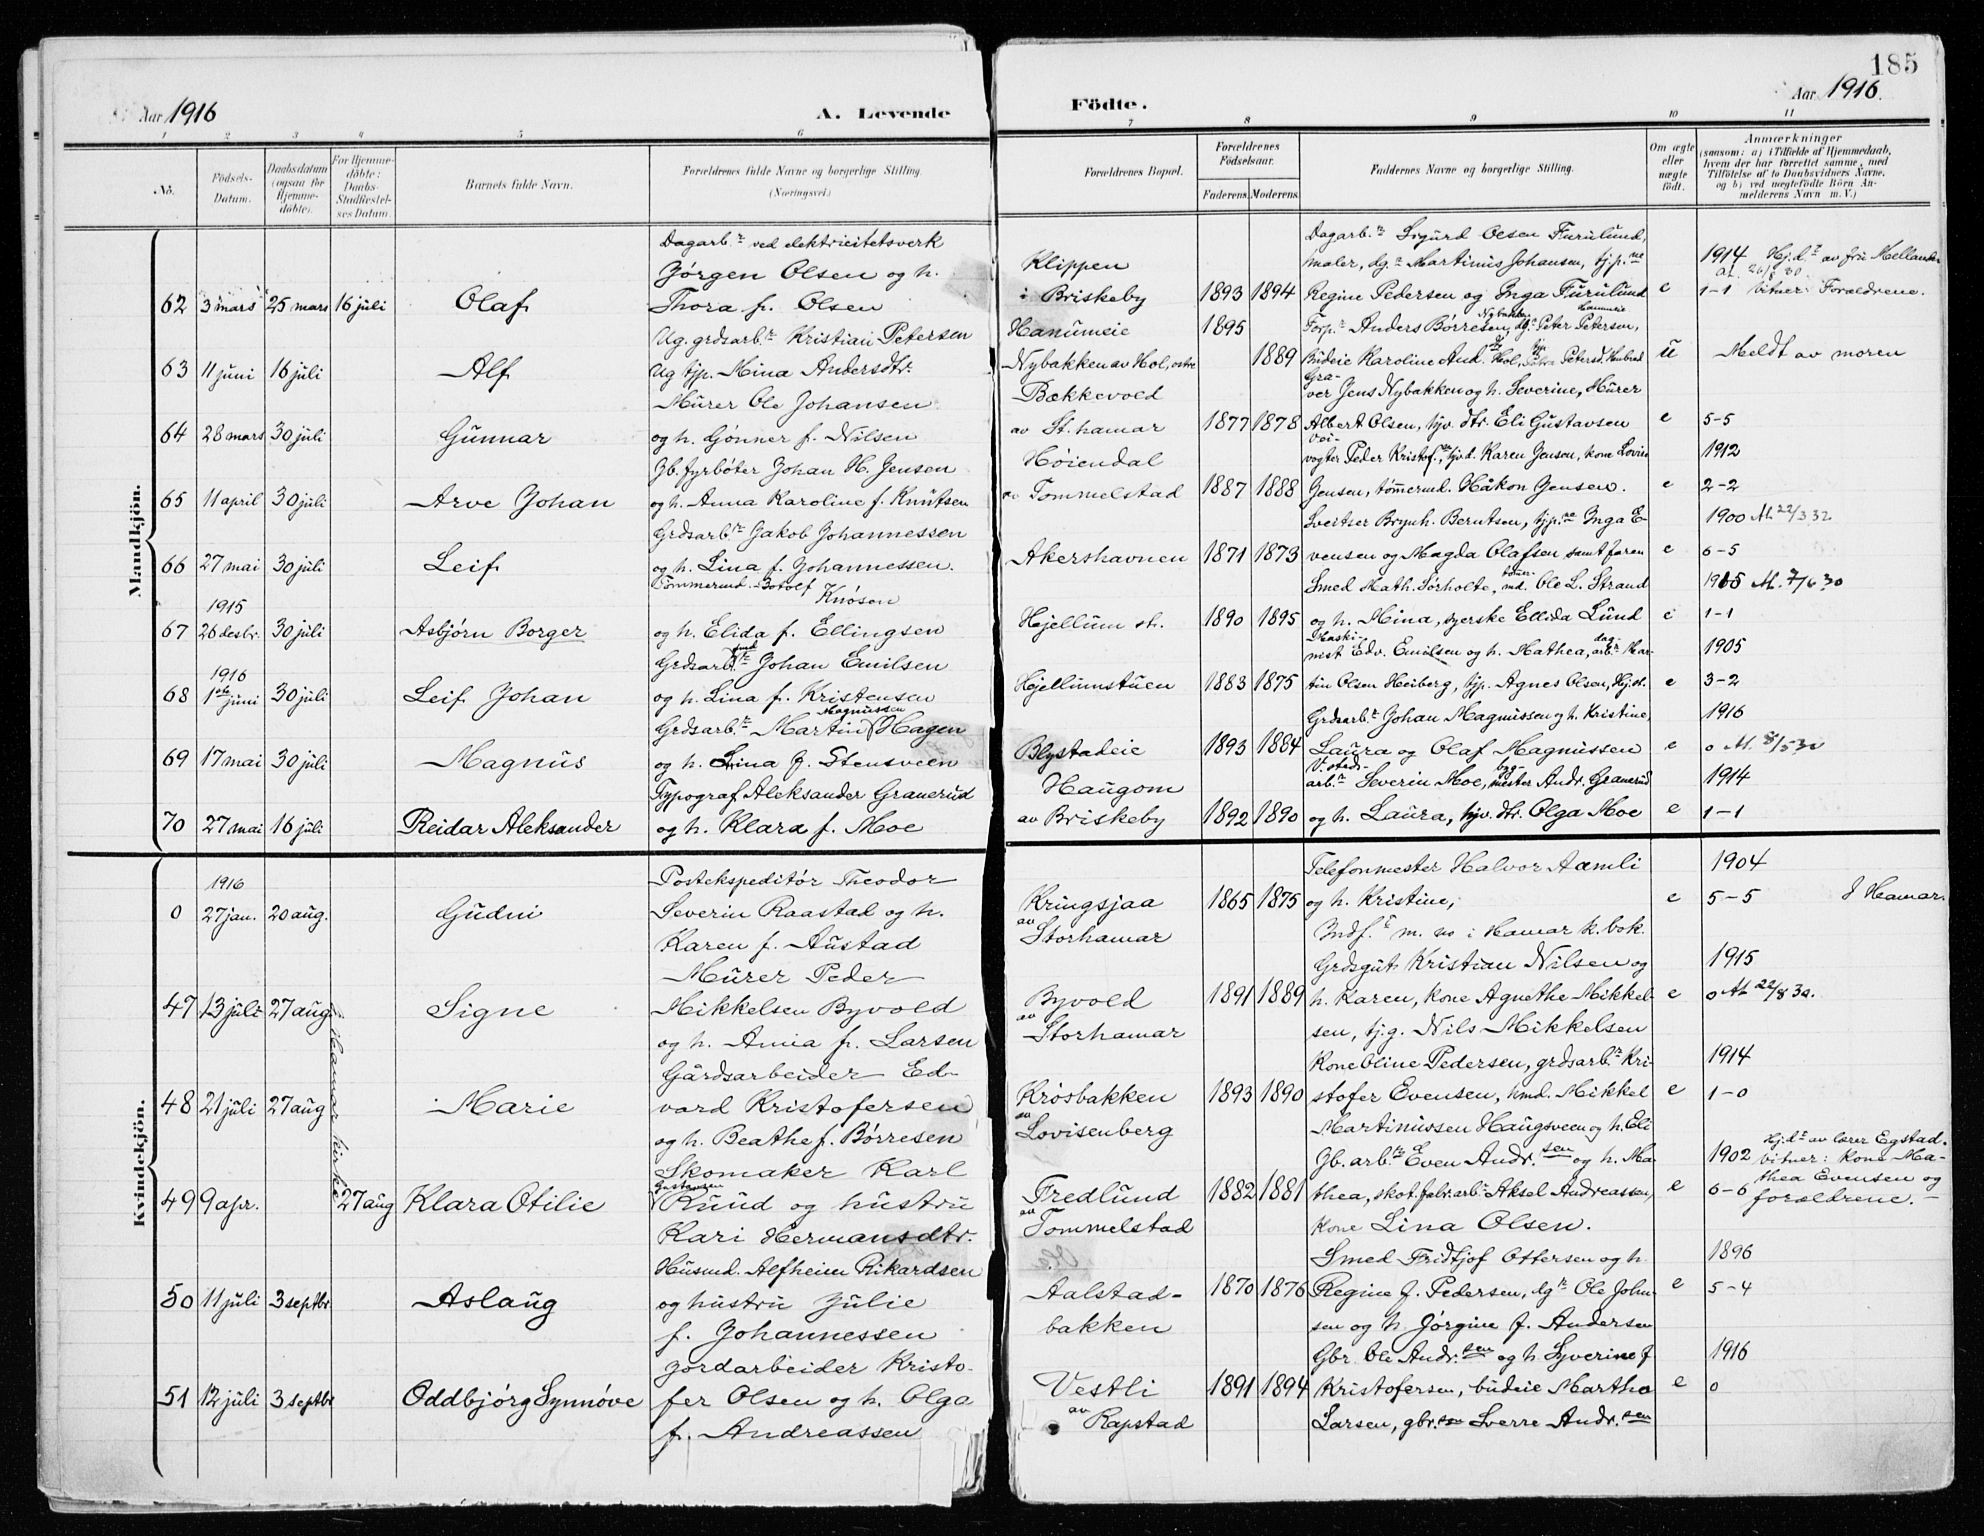 185
Aar 1916
A. Levende
Födte.
Aar 1916.
1 2 3 4 5 6 7 8 9 10 11
No.
Födsels-Datum.
Daabsdatum (ogsaa for Hjemme-döbte).
For Hjemme-döbte: Daabs-Stadfæstel-ses Datum.
Barnets fulde Navn.
Forældrenes fulde Navne og borgerlige Stilling. (Næringsvei.)
Forældrenes Bopæl.
Forældrenes Födselsaar.
Faderens. Moderens.
Faddernes Navne og borgerlige Stilling.
Om ægte eller uægte födt.
Anmærkninger
(saasom: a) i Tilfælde af Hjemmedaab, hvem der har forrettet samme, med Tilföielse af to Daabsvidners Navne, og b) ved uægtefödte Börn An-melderens Navn m. V.)
Mandkjön.
62 3 mars 25 mars 16 juli Olaf
Dagarb.r ved elektricitetsverk
Jørgen Olsen og h.
Thora f. Olsen
Klippen
i Briskeby
1893 1894
Dagarb.r Sigurd Olsen Furulund,
maler, dg.r Martinus Johansen, tj.p.ne
Regine Pedersen og Inga Furulund
e
1914 Hj.d.t av fru Mellander
1-1 vitner: Forældrene.
63 11 juni 16 juli Alf
Ug. grdsarb.r Kristian Petersen
Ug tjp. Mina Andersdtr.
Hanumeie
Nybakken av Hol, østre
1895
1889
Forp.r Anders Børresen, Nybakken, dg.r Peter Petersen,
Budeie Karoline And.
u
Meldt av moren
64 28 mars 30 juli Gunnar
Murer Ole Johansen
og h. Gønner f. Nilsen
Bækkevold
av St. hamar
1877 1878
Graver Jens Nybakken og h. Severine, Murer
Albert Olsen, hjv. dtr. Eli Gustavsen
e
5-5
65 11 april 30 juli Arve Johan
Jb. fyrbøter Johan H. Jensen
og h. Anna Karoline f. Knutsen
Høiendal
av Tommelstad
1887 1888
Veivogter Peder Kristof.sen, hjv.d. Karen Jensen, kone Lovise
Jensen, tømermd. Håkon Jensen.
e
1912
2-2
66 27 mai 30 juli Leif
Grdsarb.r Jakob Johannessen
og h. Lina f. Johannessen.
Akershavnen
1871 1873
Sveitser Brynh. Berntsen, tjp.ne Inga E-
vensen og Magda Olafsen samt faren
e
1900 At. 22/3 32
6-5
1915
67 26 desbr. 30 juli Asbjørn Borger
Tømmermd. Botolf Knøsen
og h. Elida f. Ellingsen
Hjellum st.
1890 1895
Smed Math. Sørholte, tømmermd. Ole L. Strand
og h. Mina, syerske Ellida Lund
e
1915 At. 7/6 30
1-1
1916
68 1ste juni 30 juli Leif Johan
Grdsarb.r Johan Emilsen
og h. Lina f. Kristensen
Hjellumstuen
1883 1875
Maskinist Edv. Emilsen og h. Mathea, dagarb.r Mar-
tin Olsen Heiberg, tjp. Agnes Olsen, Hj. st.
e
1905
3-2
69 17 mai 30 juli Magnus
Grdsarb.r Martin Magnussen Hagen
og h. Lina f. Stensveen
Blystadeie
1893 1884
Grdsarb.r Johan Magnussen og h. Kristine,
Laura og Olaf Magnussen
e
1916
0 At. 8/5 30
70 27 mai 16 juli Reidar Aleksander
Typograf Aleksander Granerud
og h. Klara f. Moe
Haugom
av Briskeby
1892 1890
V. stads-arb.r Severin Moe, bygmester Andr. Granerud
og h. Laura, hjv. dtr. Olga Moe
e
1914
1-1
Kvindekjön.
1916
0 27 jan. 20 aug. Gudni
Postekspeditør Theodor
Severin Raastad og h.
Karen f. Austad
Kringsjaa
av
Storhamar
1865 1875
Telefonmester Halvor Aamli
og h. Kristine,
Indf.t m. no i Hamar k. bok.
e
1904
5-5 I Hamar.
47 13 juli 27 aug. Signe
i Hamar kirke
Murer Peder
Mikkelsen Byvold
og h. Anna f. Larsen
Byvold
av
Storhamar
1891 1889
Grdsgut. Kristian Nilsen og
h. Karen, kone Agnethe Mikkel-
sen, tj.g. Nils Mikkelsen
e
1915
0 At 22/8 32.
48 21 juli 27 aug Marie
Gårdsarbeider Ed-
vard Kristofersen
og h. Beathe f. Børresen
Krøsbakken
av
Lovisenberg
1893 1890
Kone Oline Pedersen, grdsarb.r Kri-
stofer Evensen, hmd. Mikkel
Martinussen Haugsveen og h. Eli
e
1914
1-0
49 9 apr. 27 aug Klara Otilie
Skomaker Karl
Gustavsen
Ruud og hustru
Kari Hermansdtr.
Fredlund
av
Tommelstad
1882 1881
Jb. arb.r Even Andr.sen og h. Ma-
thea, skot. fabr. arb.r Aksel Andreassen,
kone Lina Olsen.
e
1902
6-6
Hj.d.t av lærer Egstad.
vitner: kone Ma-
thea Evensen og
forældrene.
50 11 juli 3 septbr. Aslaug
Husmd. Alfheim Rikardsen
og hustru Julie
f. Johannessen
Aalstad-
bakken
1870 1876
Smed Fridtjof Ottersen og h.
Regine f. Pedersen, dg.r Ole John-
sen og h. Jørgine f. Andersen
e
1896
5-4
51 12 juli 3 septbr Oddbjørg Synnøve
Jordarbeider Kristo-
fer Olsen og h. Olga
f. Andreassen
Vestli
av
Rapstad
1891 1894
Gbr. Ole Andr.sen og h. Syverine f
Kristofersen, budeie Martha
Larsen, gbr.søn Sverre Andr.sen
e
1916
0